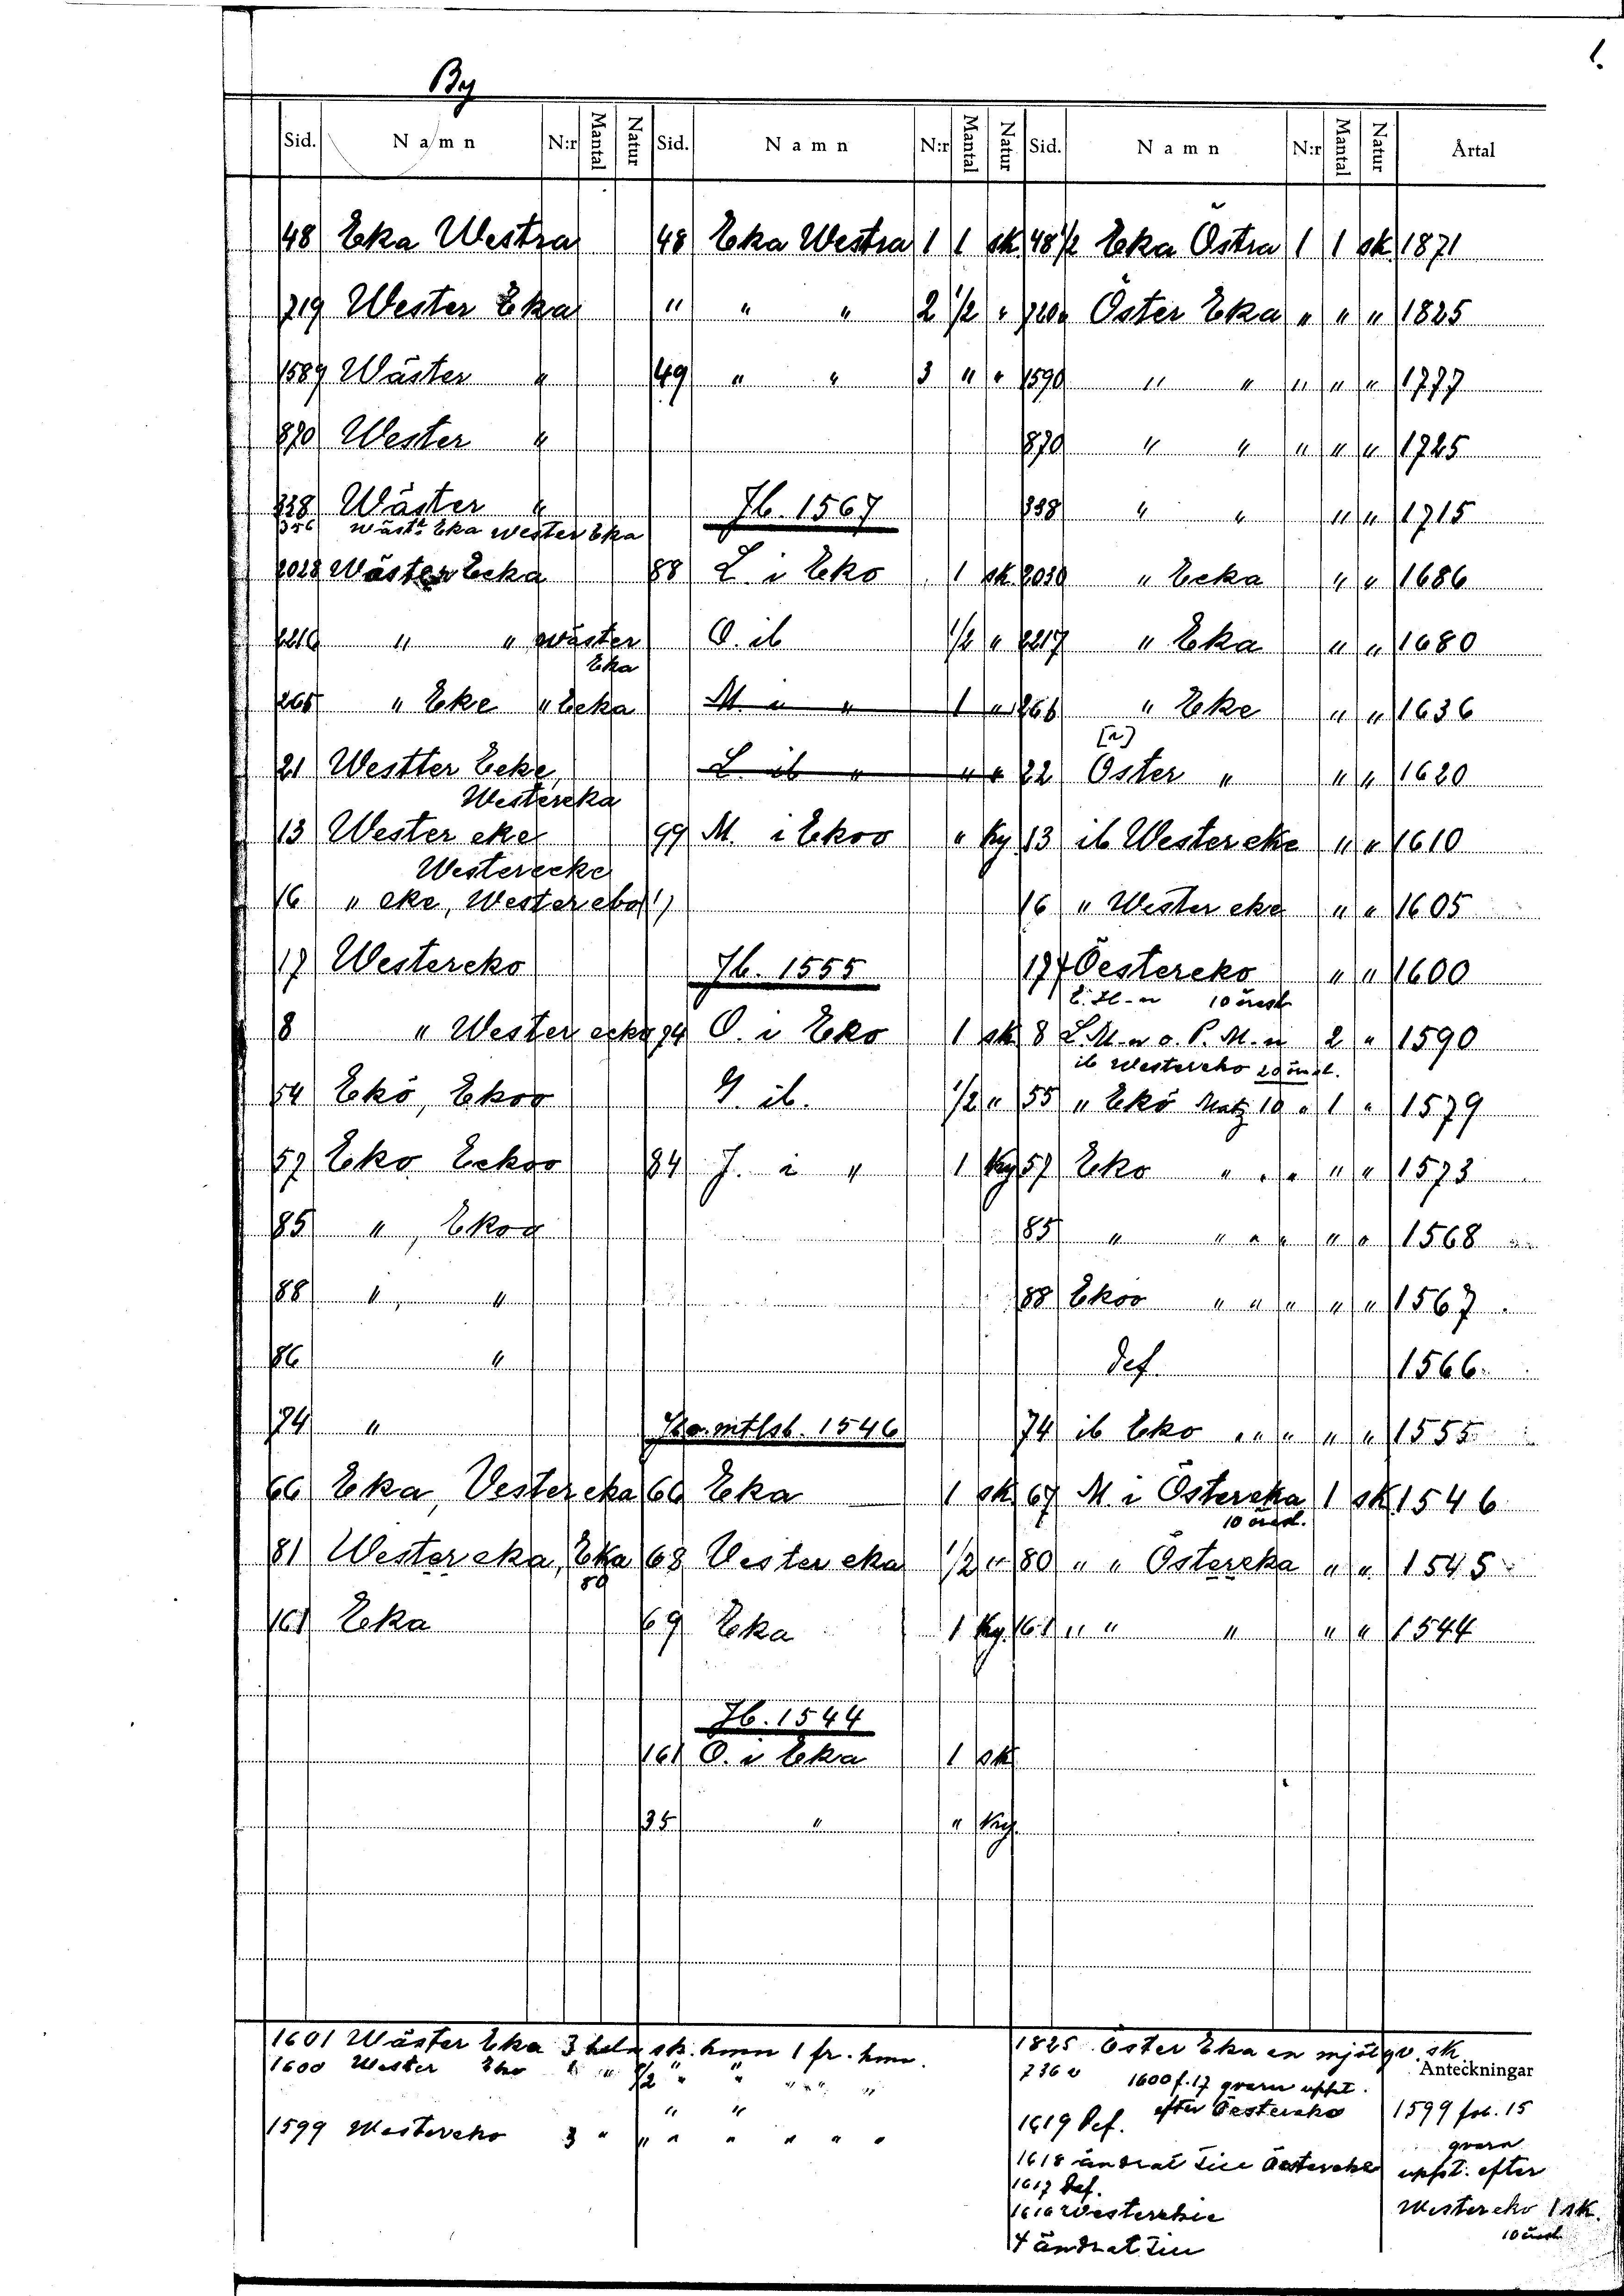 1.
By
Sid. Namn N:r Mantal Natur Sid. Namn N:r Mantal Natur Sid. Namn N:r Mantal Natur Årtal
48 Eka Westra 48 Eka Westra 1 1 sk. 48 1/2 Eka Östra 1 1 sk. 1871
719 Wester Eka " " " 2 1/2 " 720 Öster Eka " " " 1825
1589 Wäster " 49 " " 3 " " 1590 " " " " " 1777
870 Wester " 870 " " " " " 1725
338 Wäster " Jb. 1567 338 " " " " 1715
356 Wästr Eka Wester Eka
2028 Wäster Ecka 88 L. i Eko 1 sk. 2030 " Ecka " " 1686
2216 " " wäster Eka O. ib 1/2 " 2217 " Eka " " 1680
265 " Eke " Ecka M " " 1 " 266 " Eke " " 1636
21 Westter Ecke, Westereka L ib " " " 22 Öster " " " 1620
13 Wester eke 99 M. i Ekoo " Ky 13 ib Wester eke " " 1610
Westerecke
16 " eke, Wester eba!) 16 " Wester eke " " 1605
17 Westereko Jb. 1555 17 Öestereko " " 1600
10 öresl.
8 " Wester ecko 74 O. i Eko 1 sk 8 L. M-n o. P. M-n 2 " 1590
ib Westereko 20 öresl.
54 Ekö, Ekoo G. ib. 1/2 " 55 " Ekö Matz 10 " 1 " 1579
57 Eko Eckoo 84 J. i " 1 Ky 57 Eko " " " " " 1573
85 ", Ekoo 85 " " " " " " 1568
88 ", " 88 Ekoo " " " " " 1567
86 " def. 1566
74 " mtlsb. 1546 74 ib Eko " " " " " 1555
66 Eka, Vester eka 66 Eka 1 sk 67 M. i Östereka 1 sk. 1546
10 öresl.
81 Wester eka, Eka 80 68 Vester eka 1/2 " 80 " " Östereka " " 1545
161 Eka 69 Eka 1 Ky. 161 " " " " " 1544
Jb. 1544
161 O. i Eka 1 sk
35 " " Ky.
1601 Wäster Eka 3 hela sk. hmn 1 fr. hmn.
1600 Wester Eko " " 1/2 " " " " "
" "
1599 Westereko 3 " " " " " " "
1825 Öster Eka en mjölqv. sk.
736 v 1600 f. 17 qvarn uppt.
efter Oestereko
1619 Def.
1618 ändrat till Oestereke
1617 Def.
1616 Westerekie
+ ändrat till
Anteckningar
1599 fol. 15
qvarn
uppt. efter
Westereko 1 sk.
10 öresl.